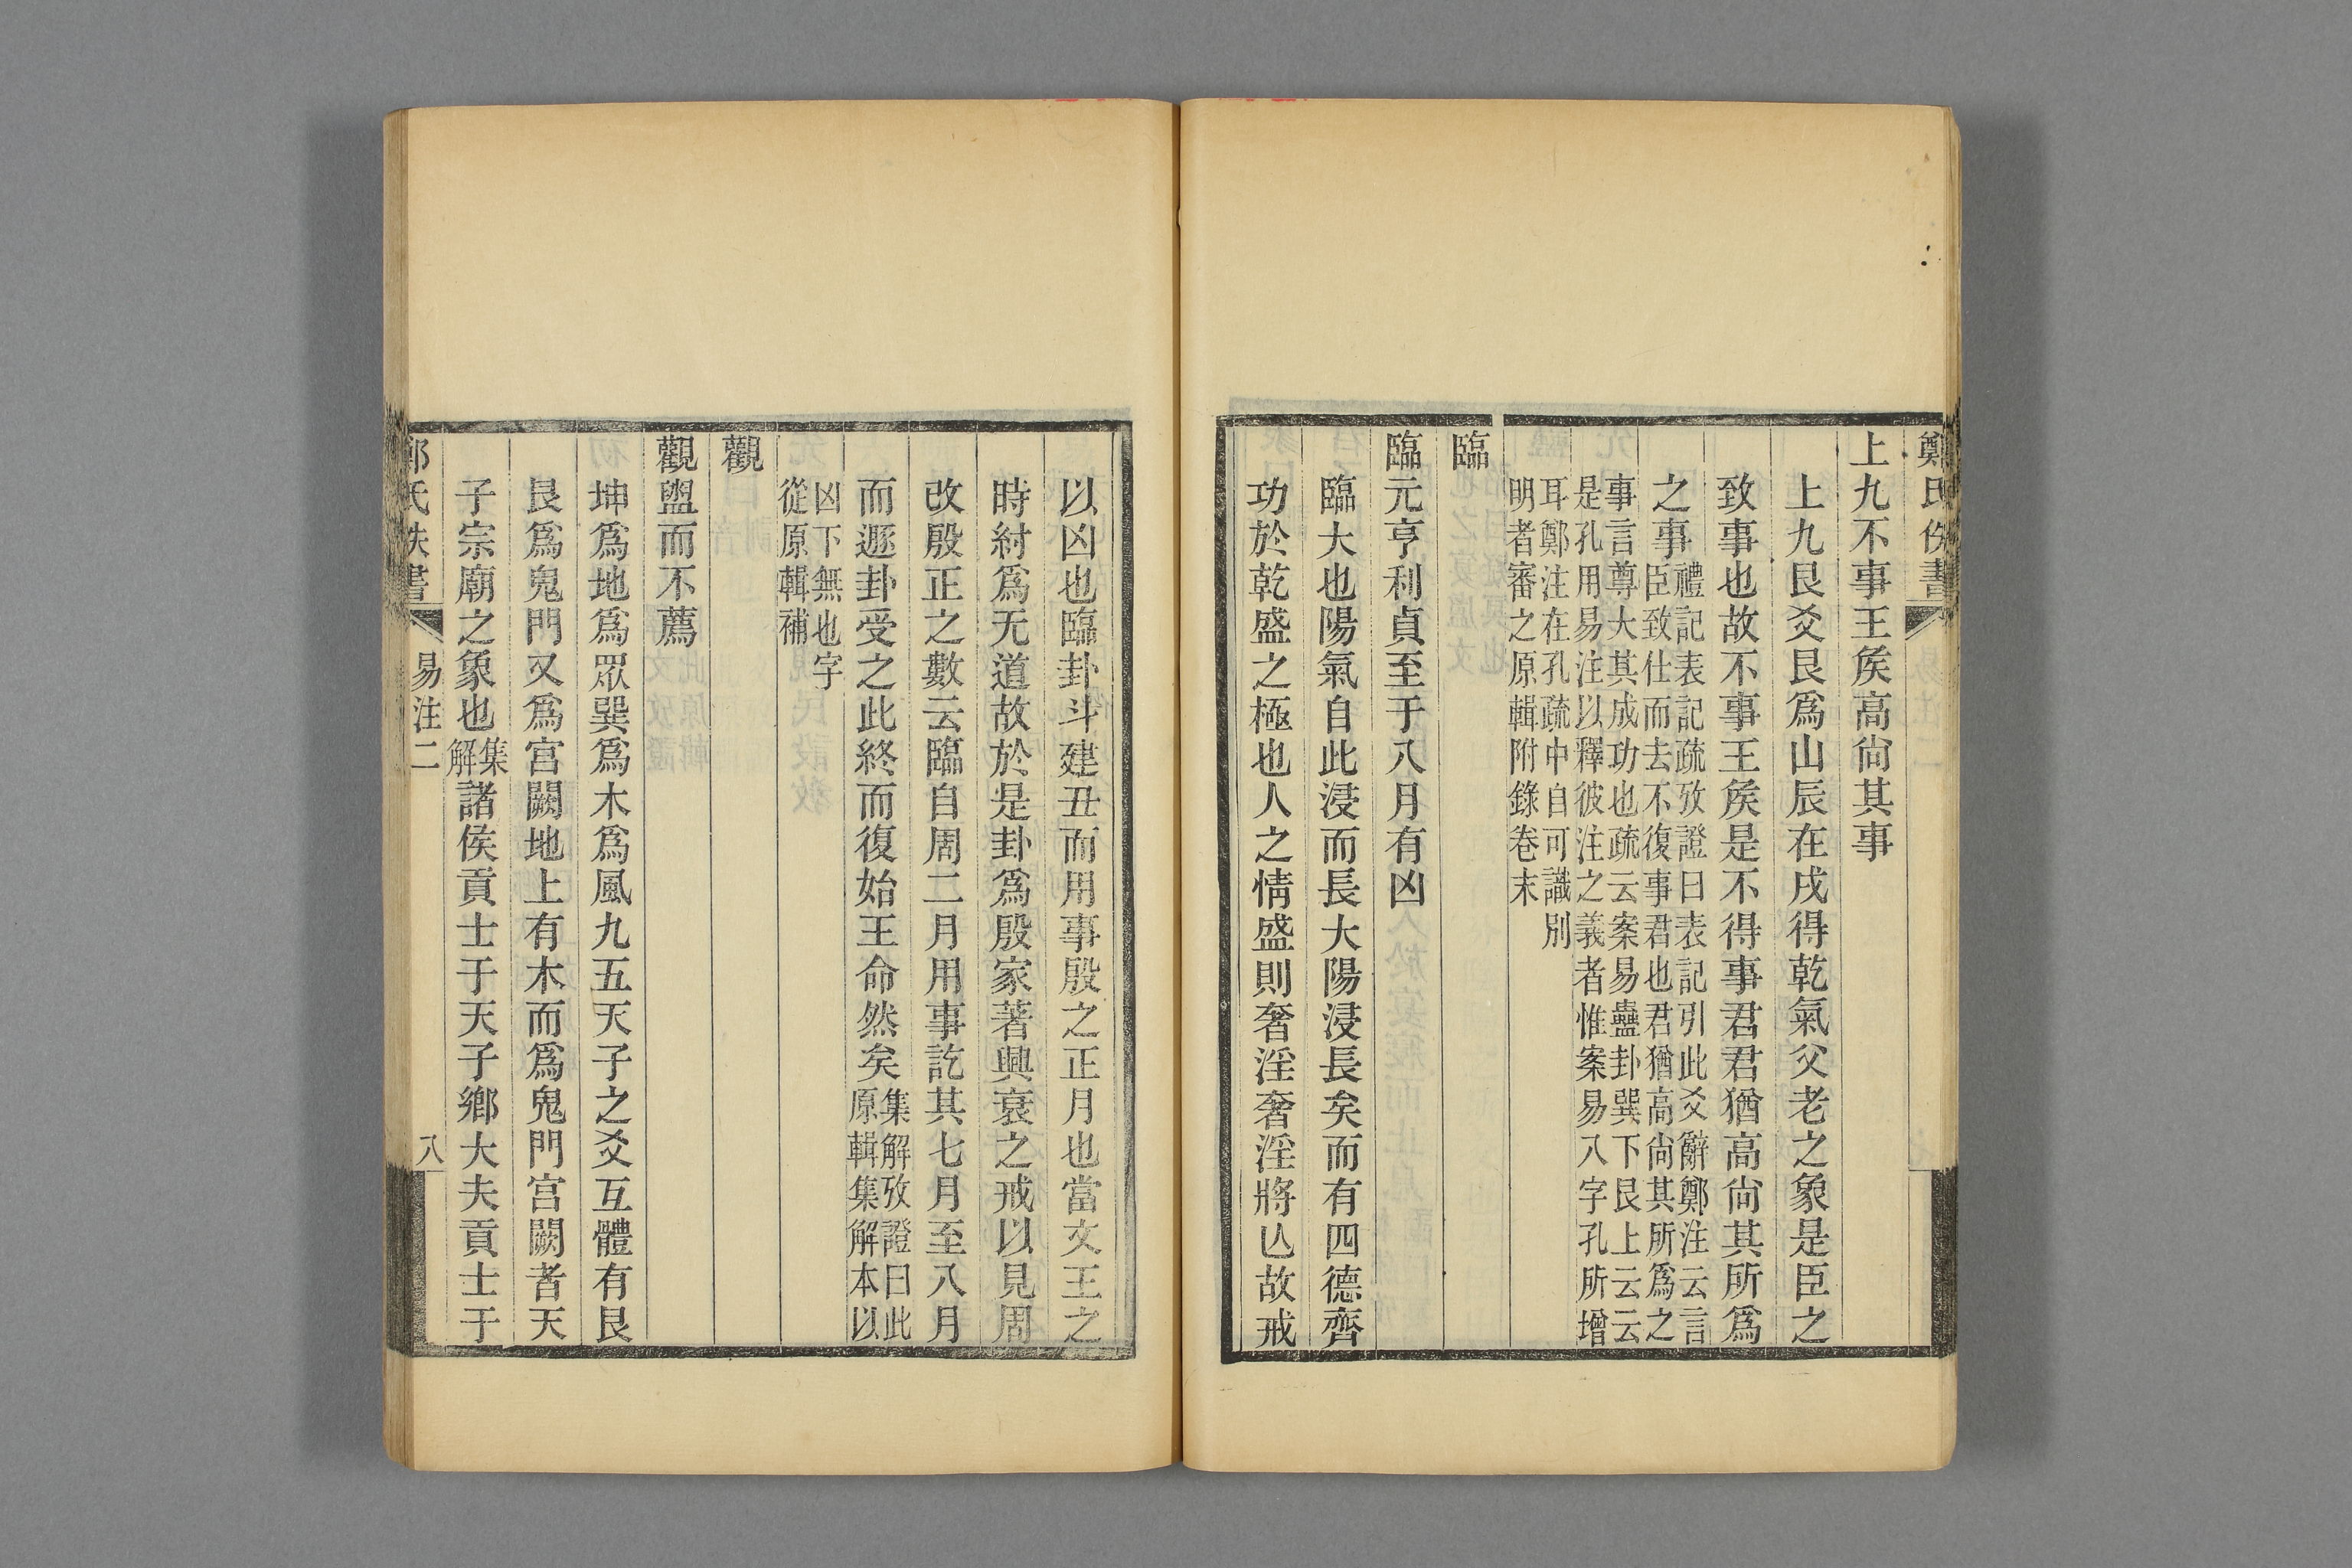 鄭氏佚書
上九不事王矦高尙其事
上九艮爻艮爲山辰在戌得乾氣父老之象是臣之
致事也故不事王矦是不得事君君猶高尙其所爲
之事
禮記表記疏攷證曰表記引此爻辭鄭注云言
臣致仕而去不復事君也君猶高尙其所爲之
事言尊大其成功也疏云案易蠱卦巽下艮上云云
是孔用易注以釋彼注之義者惟案易八字孔所增
耳鄭注在孔疏中自可識別
明者審之原輯附錄卷末
臨
臨元亨利貞至于八月有凶
臨大也陽氣自此浸而長大陽浸長矣而有四德齊
功於乾盛之極也人之情盛則奢淫奢淫將亾故戒
以凶也臨卦斗建丑而用事殷之正月也當文王之
時紂爲无道故於是卦爲殷家著興衰之戒以見周
改殷正之數云臨自周二月用事訖其七月至八月
而遯卦受之此終而復始王命然矣
集解攷證曰此
原輯集解本以
凶下無也字
從原輯補
觀
觀盥而不薦
坤爲地爲眾巽爲木爲風九五天子之爻互體有艮
艮爲鬼門又爲宮闕地上有木而爲鬼門宮闕者天
子宗廟之象也
集
解
諸侯貢士于天子鄉大夫貢士于
鄭氏佚書
易注二
八